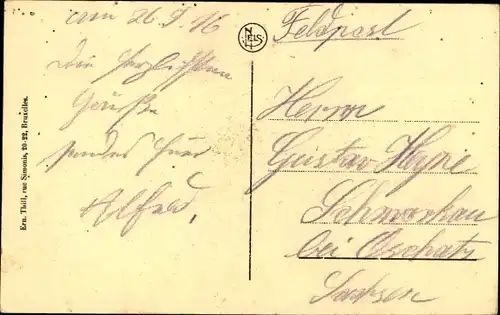 am 26.9.16
Die herzlichsten
Grüße
sendet Euer
Alfred,
Ern. Thill, rue Simonis, 20-22, Bruxelles.
NELS
Feldpost
Herrn
Gustav
bei Oschatz
Sachsen